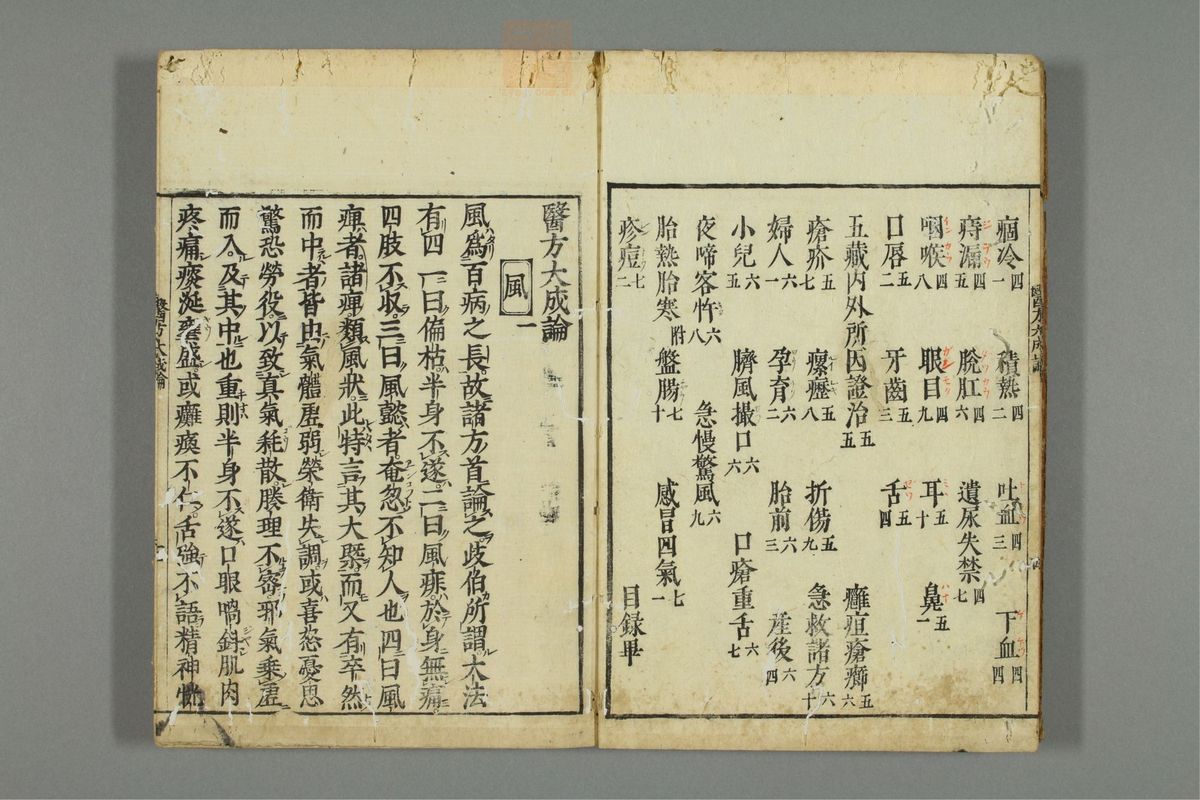 痼冷四一 積熱四二 吐血四三 下血四四
痔漏四五 脫肛四六 遺尿失禁四七
咽喉四八 眼目四九 耳五十 鼻五一
口唇五二 牙齒五三 舌五四
五藏內外所因證治五五 癰疽瘡癤五六
瘡疥五七 瘰癧五八 折傷五九 急救諸方六十
婦人六一 孕育六二 胎前六三 產後六四
小兒六五 臍風撮口六六 口瘡重舌六七
夜啼客忤六八 急慢驚風六九
胎熱胎寒附 盤腸七十 感冒四氣七一
疹痘七二 目録畢
醫方大成論
風一
風爲百病之長故諸方首論之歧伯所謂大法
有四一曰偏枯半身不遂二曰風痱於身無痛
四肢不収三曰風懿者奄忽不知人也四曰風
痺者諸痺類風狀此特言其大槩而又有卒然
而中者皆由氣軆虛弱榮衛失調或喜怒憂思
驚恐勞役以致真氣耗散腠理不密邪氣乘虛
而入及其中也重則半身不遂口眼喎斜肌肉
疼痛痰涎壅盛或癱瘓不仁舌強不語精神恍